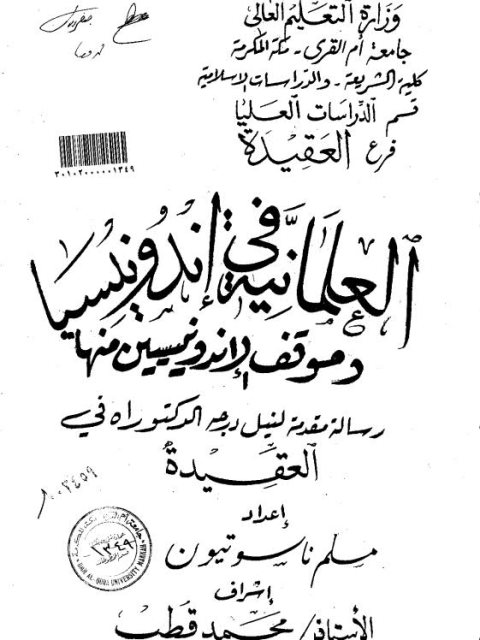 وزارة التعليم العالي
جامعة أم القرى - مكة المكرمة
كلية الشريعة - والدراسات الإسلامية
قسم الدراسات العليا
فرع العقيدة
٣٠١٠٢٠٠٠٠٠١٣٤٩
العلمانية في إندونيسيا
وموقف الإندونيسيين منها
رسالة مقدمة لنيل درجة الدكتوراه في
العقيدة
٠٠٣٤٥٩
إعداد
مسلم ناسوتيون
١٣٤٩
UMM AL-QURA UNIVERSITY MAKKAH
إشراف
الأستاذ / محمد قطب